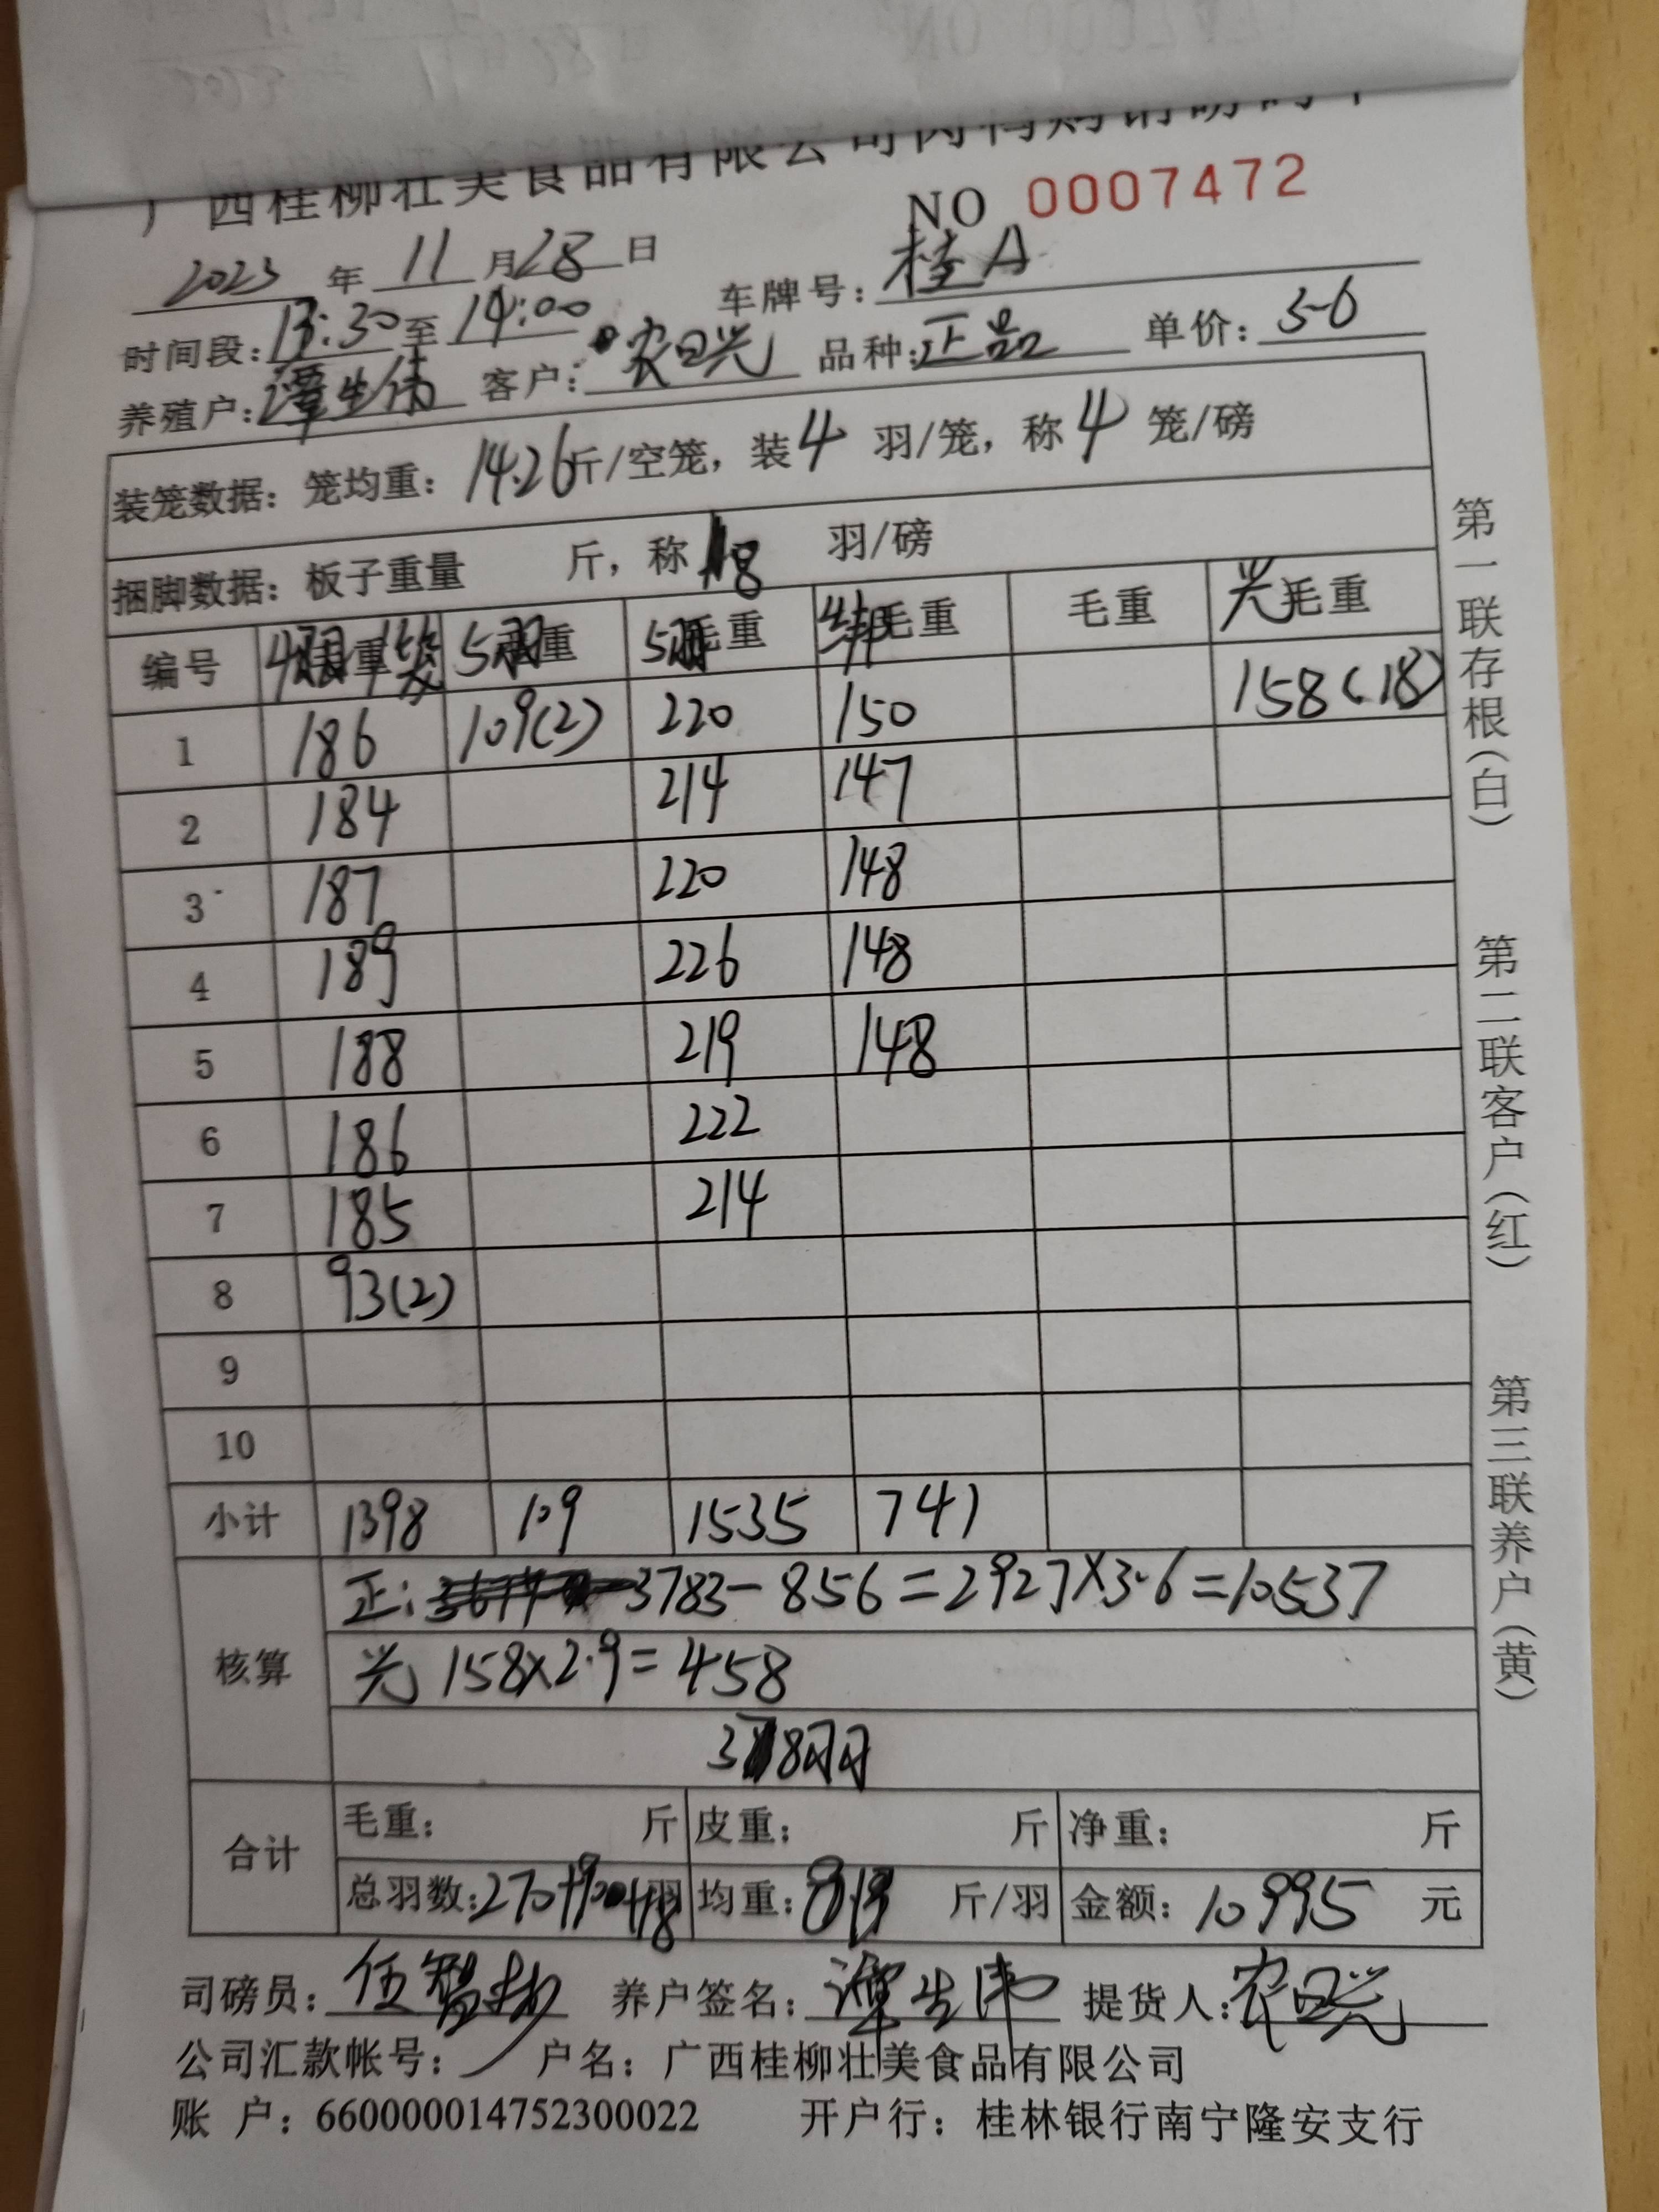 广西桂柳壮美食品有限公司肉鸭购销磅码单
NO 0007472
2023 年 11 月 28 日
车牌号: 桂A
时间段: 13:30 至 14:00
养殖户: 谭生伟 客户: 农日兴 品种: 正品 单价: 3.6
装笼数据: 笼均重: 14.26 斤/空笼, 装 4 羽/笼, 称 4 笼/磅
捆脚数据: 板子重量 斤, 称 18 羽/磅
编号 毛重 5羽 毛重 5羽 毛重 毛重 毛重 光 毛重
1 186 109(2) 220 150 158(18)
2 184 214 147
3 187 220 148
4 189 226 148
5 188 219 148
6 186 222
7 185 214
8 93(2)
9
10
小计 1398 109 1535 741
核算
正: 3783-856=2927×3.6=10537
光 158×2.9=458
合计
毛重: 斤 皮重: 斤 净重: 斤
总羽数: 羽 均重: 斤/羽 金额: 10995 元
司磅员: 养户签名: 谭生伟 提货人: 农日兴
公司汇款帐号: 户名: 广西桂柳壮美食品有限公司
账 户: 660000014752300022 开户行: 桂林银行南宁隆安支行
第一联存根(白) 第二联客户(红) 第三联养户(黄)